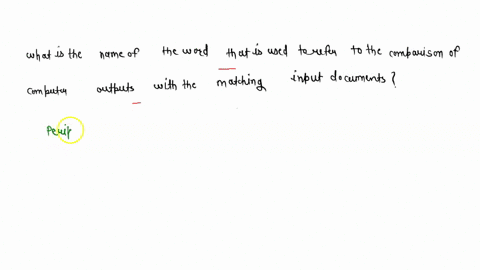 what is the name of the word that is used to refer to the comparison of
computer outputs with the matching input documents?
Perip